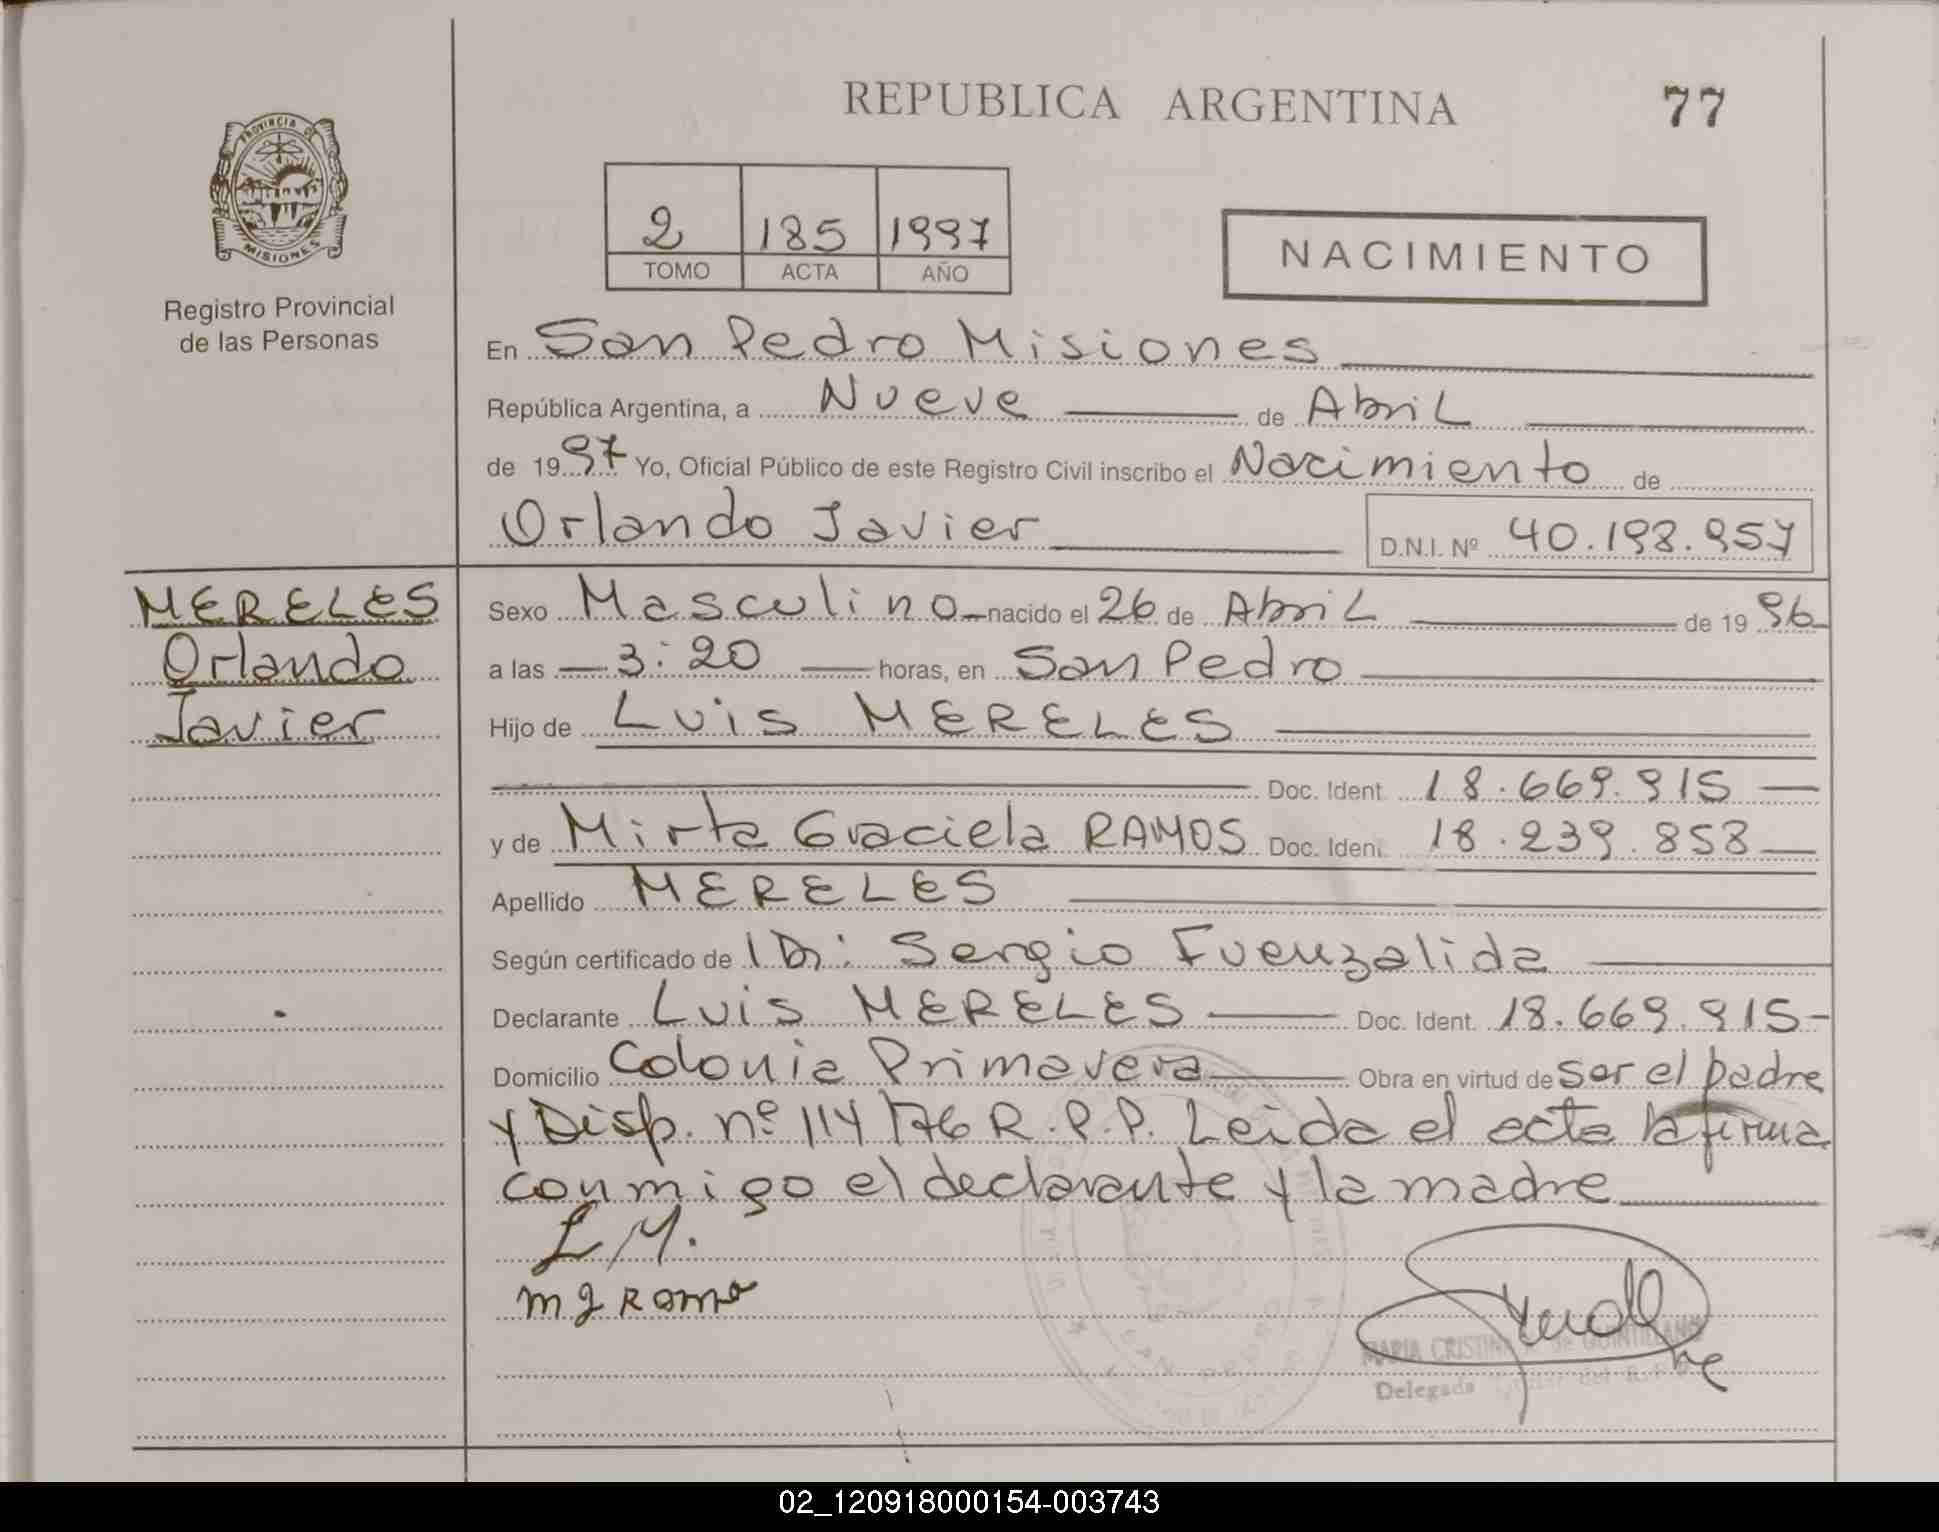 REPUBLICA ARGENTINA
77
PROVINCIA DE
MISIONES
Registro Provincial
de las Personas
2 185 1997
TOMO ACTA AÑO
NACIMIENTO
En San Pedro Misiones
República Argentina, a Nueve de Abril
de 1997 Yo, Oficial Público de este Registro Civil inscribo el Nacimiento de
Orlando Javier D.N.I. Nº 40.198.957
MERELES
Orlando
Javier
Sexo Masculino nacido el 26 de Abril de 1996
a las 3:20 horas, en San Pedro
Hijo de Luis MERELES
Doc. Ident. 18.669.915
y de Mirta Graciela RAMOS Doc. Ident. 18.239.858
Apellido MERELES
Según certificado de Dr: Sergio Fuenzalida
Declarante Luis MERELES Doc. Ident. 18.669.915
Domicilio Colonia Primavera Obra en virtud de ser el padre
y Disp. nº 114/76 R.P.P. Leida el acta la firma
conmigo el declarante y la madre
L M.
m g Ramo
MARIA CRISTINA de QUINTILLANO
Delegada Titular del R.P.P.
02_120918000154-003743